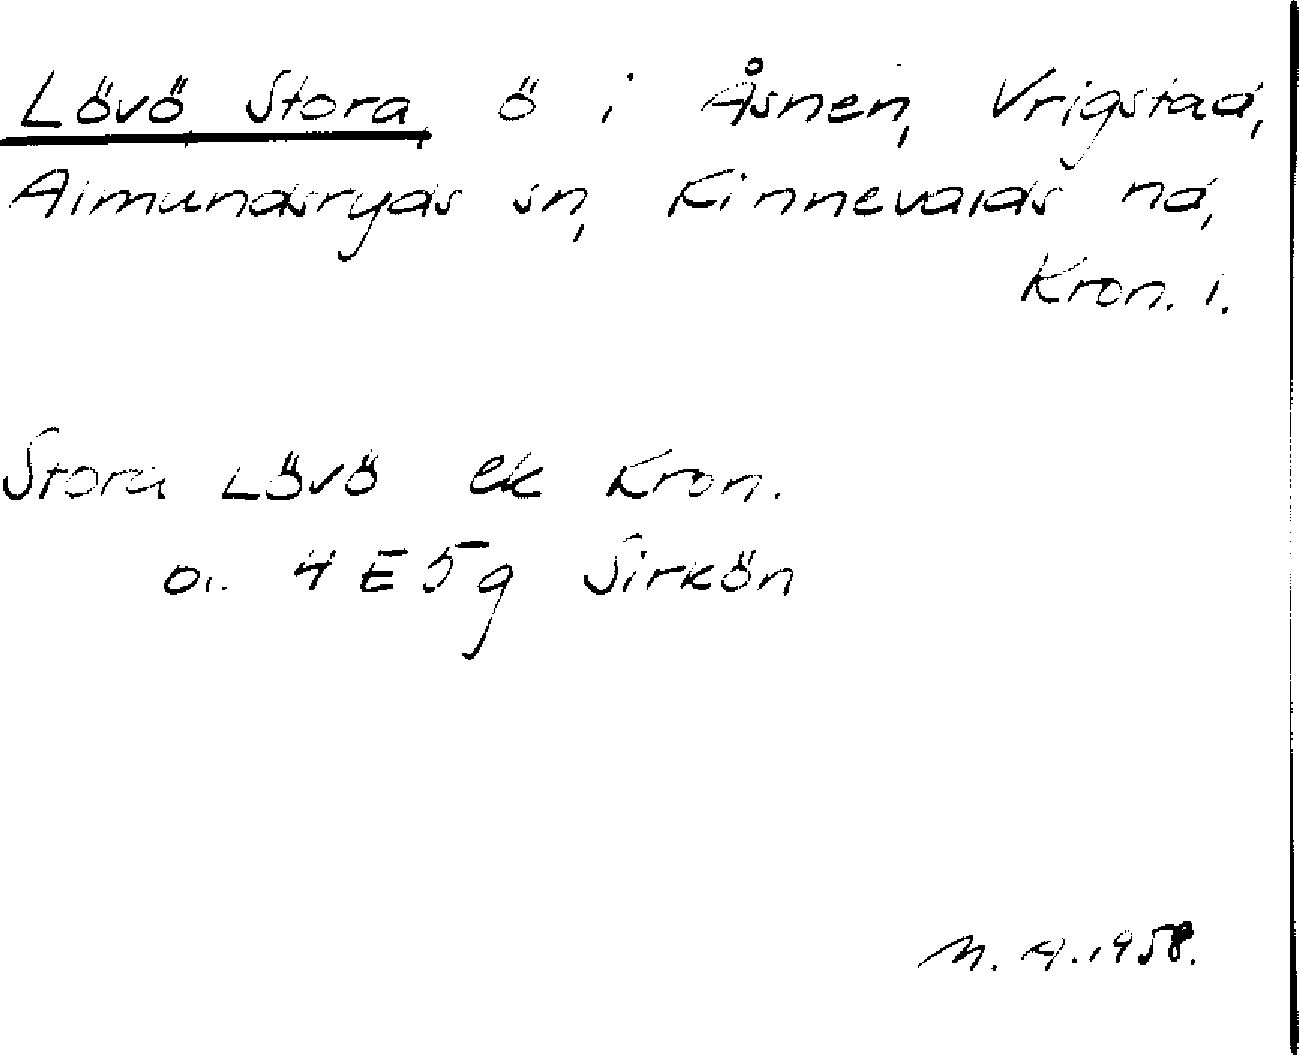 Lövö, Stora, ö i Åsnen, Vrigstad,
Almundsryds sn, Kinnevalds hd,
Kron. l.
Stora Lövö ek Kron.
o. 4E5g Sirkön
M. A. 1958.